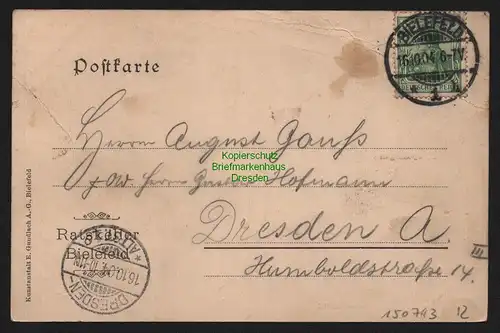 BIELEFELD
16.10.04. 6-7V.
1
Postkarte
Herrn August Gauß
Kopierschutz
Briefmarkenhaus
Dresden
Herrn Gustav Hofmann
Dresden A
Humboldtstraße 14.
III
Ratskeller
Bielefeld
DRESDEN-
ALTST.
16.10.04.
Kunstanstalt E. Gundlach A.-G., Bielefeld
150743 12